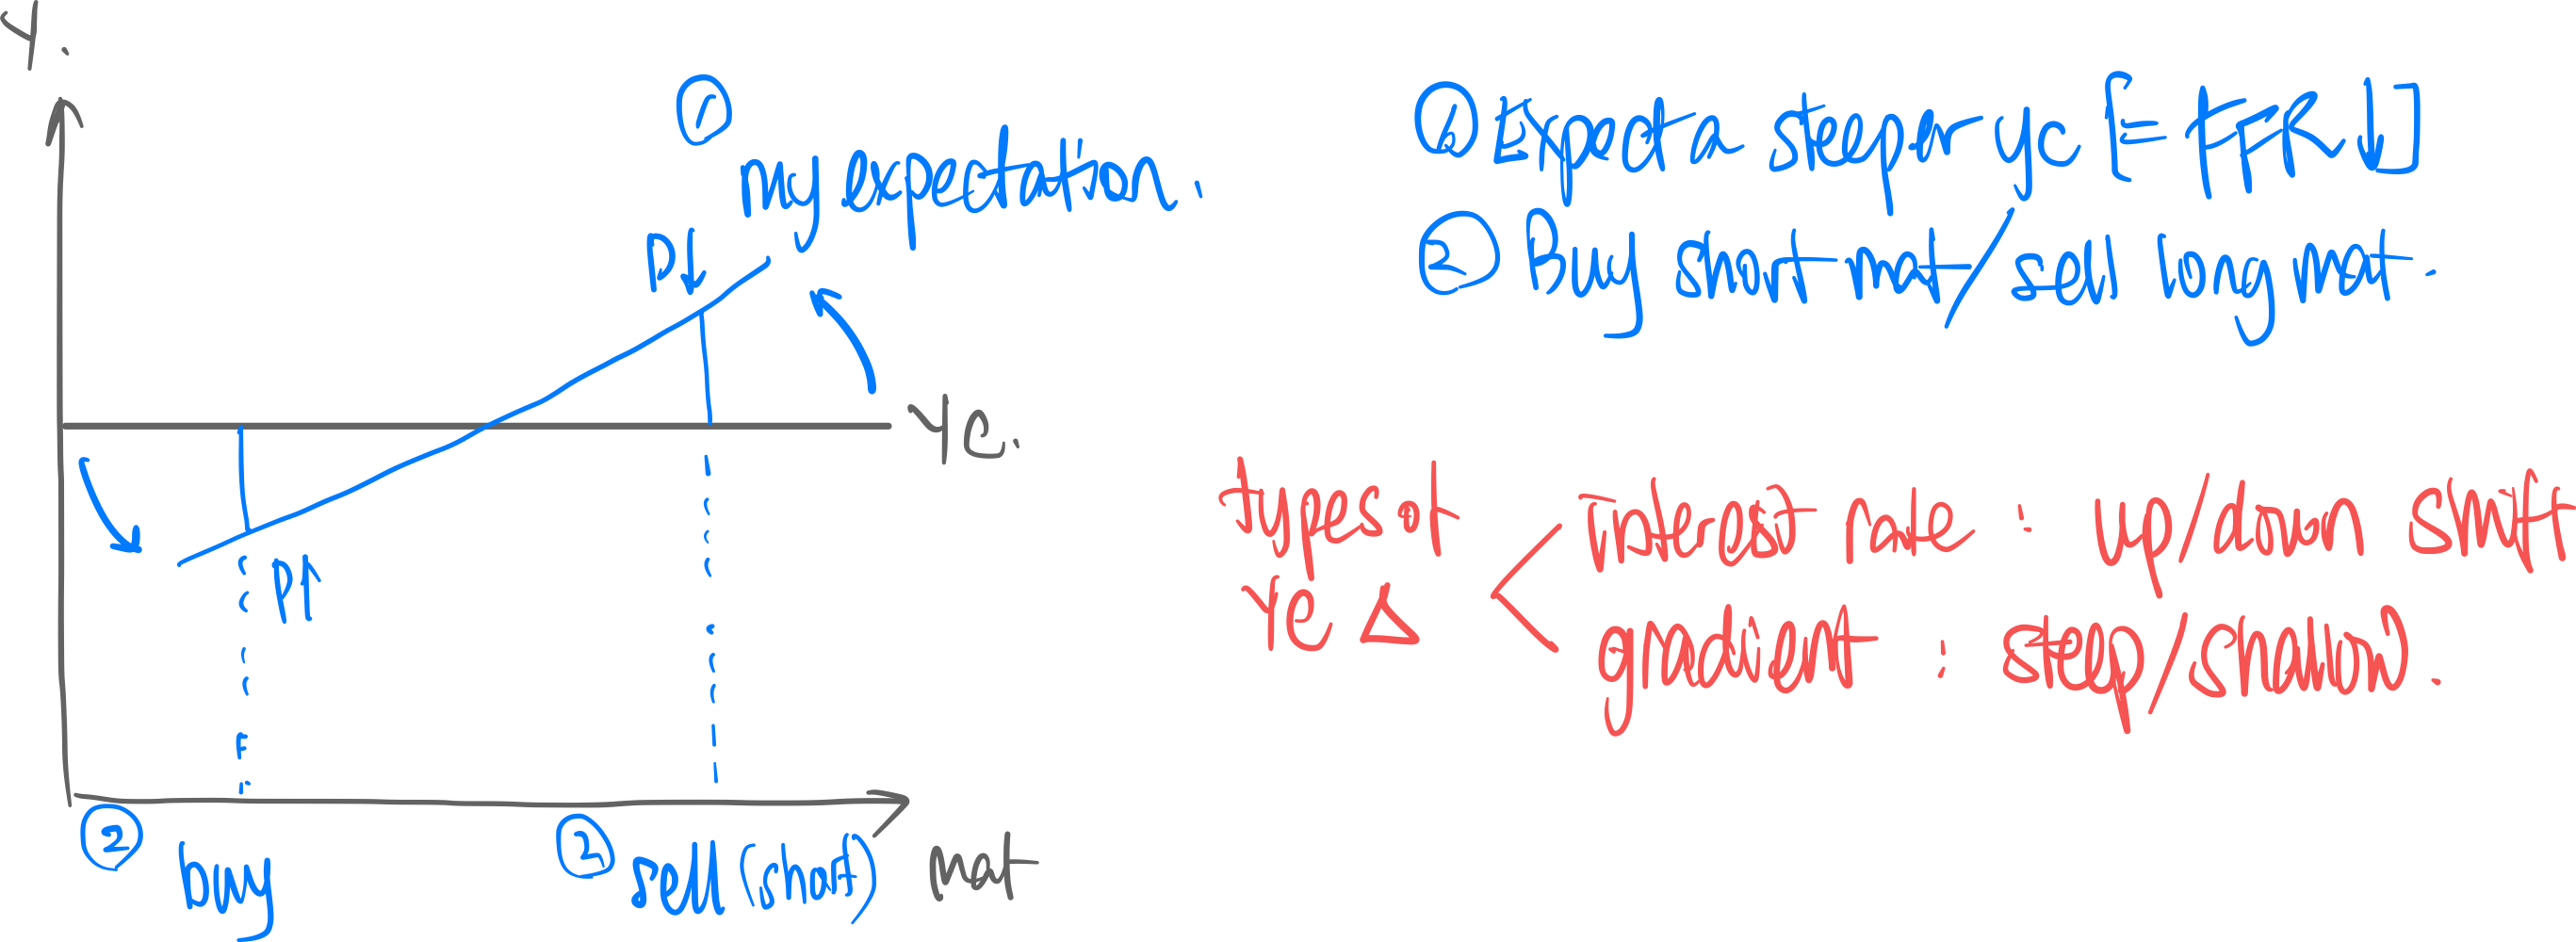 Y.
①
my expectation.
P↓
YC.
P↑
② buy
② sell (short)
mat
① Expect a steeper yc [= FFR↓]
② Buy short mat / sell long mat.
types of
YC Δ
interest rate : up/down shift
gradient : steep/shallow.